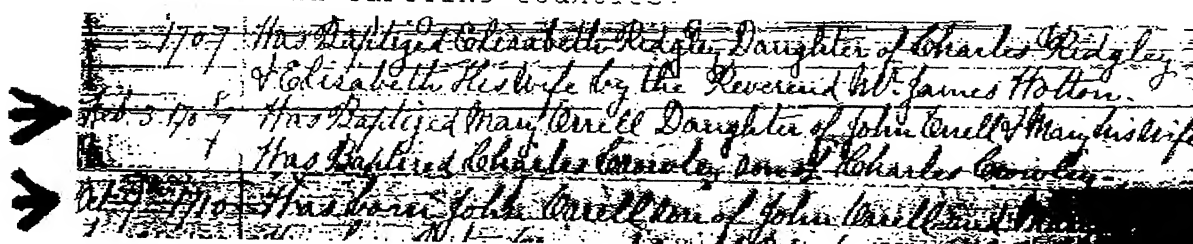 1707 Was Baptized Elisabeth Ridgley Daughter of Charles Ridgley
& Elisabeth His wife by the Reverend Mr. James Hotton.
Feb 3 170 Was Baptized Mary Orrell Daughter of John Orrell & Mary his wife
Was Baptized Charles Crowley son of Charles Crowley.
Oct 9 1710 Was born John Orrell son of John Orrell and